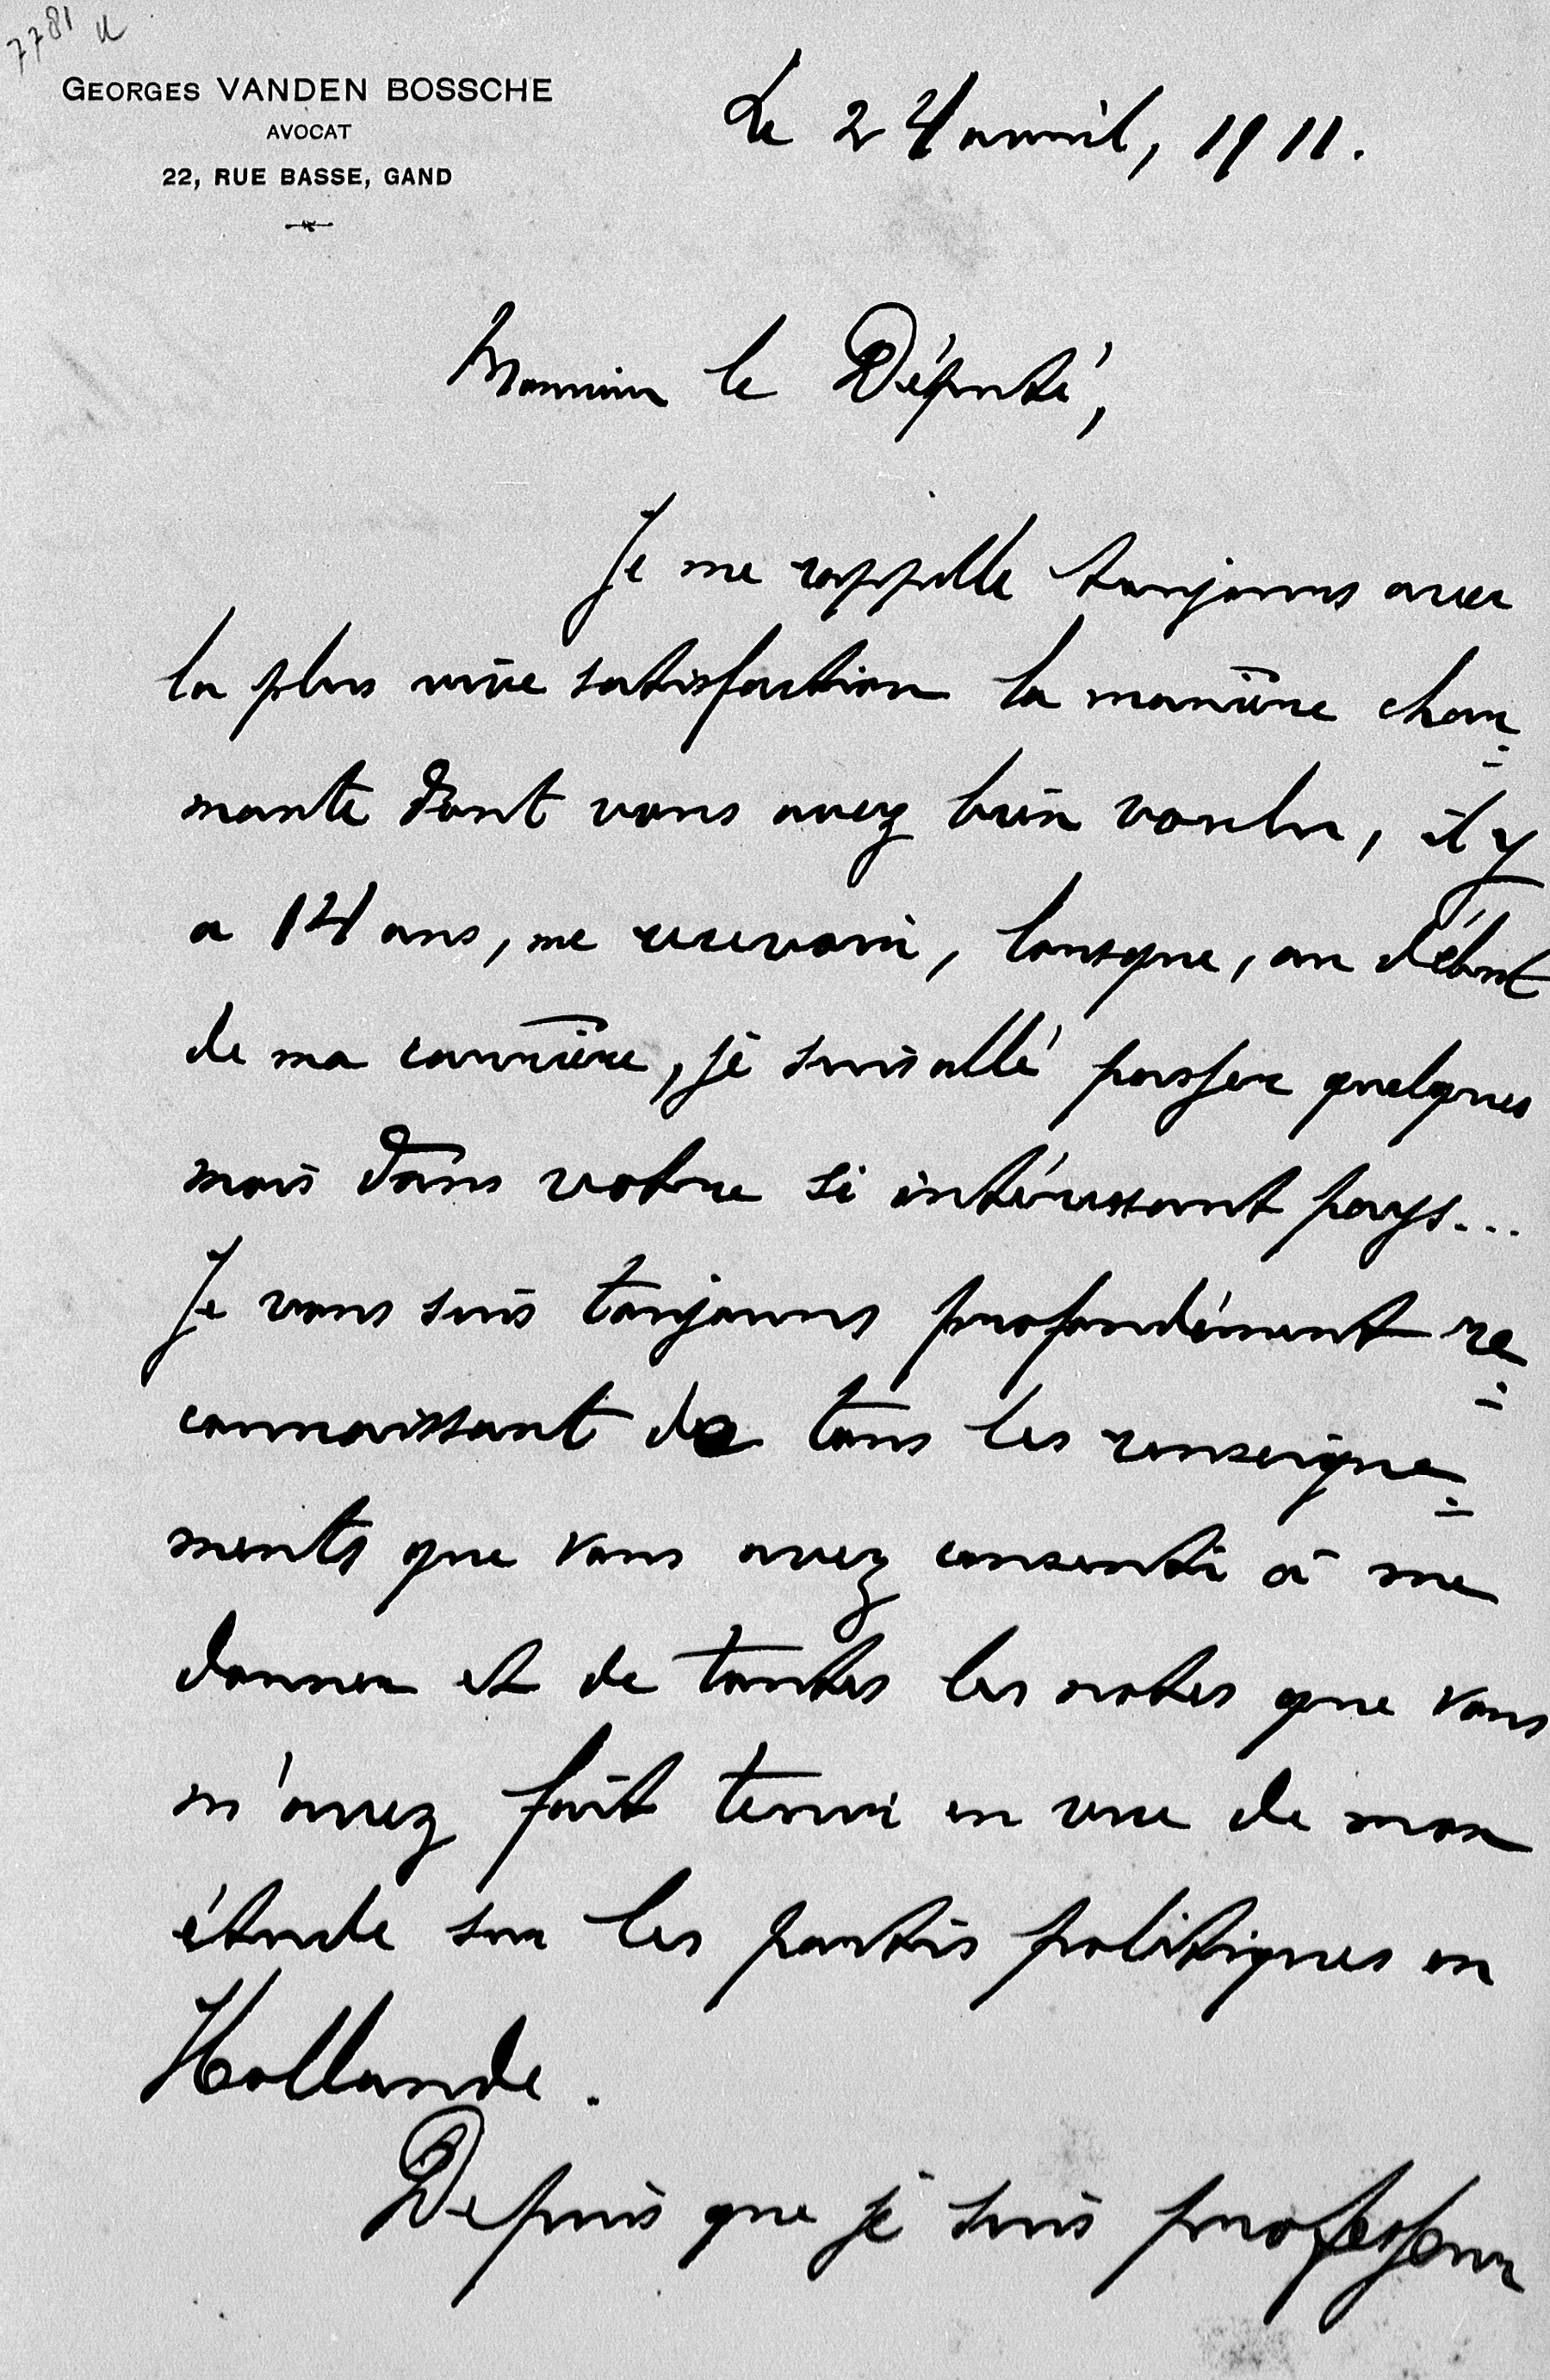 7781 u
GEORGES VANDEN BOSSCHE
AVOCAT
22, RUE BASSE, GAND
Le 24 avril, 1911.
Monsieur le Député,
Je me rappelle toujours avec
la plus vive satisfaction la manière char=
mante dont vous avez bien voulu, il y
a 14 ans, me recevoir, lorsque, au début
de ma carrière, je suis allé passer quelques
mois dans votre si intéressant pays...
Je vous suis toujours profondément re=
connaissant de tous les renseigne=
ments que vous avez consenti à me
donner et de toutes les notes que vous
m'avez fait tenir en vue de mon
étude sur les partis politiques en
Hollande.
Depuis que je suis professeur